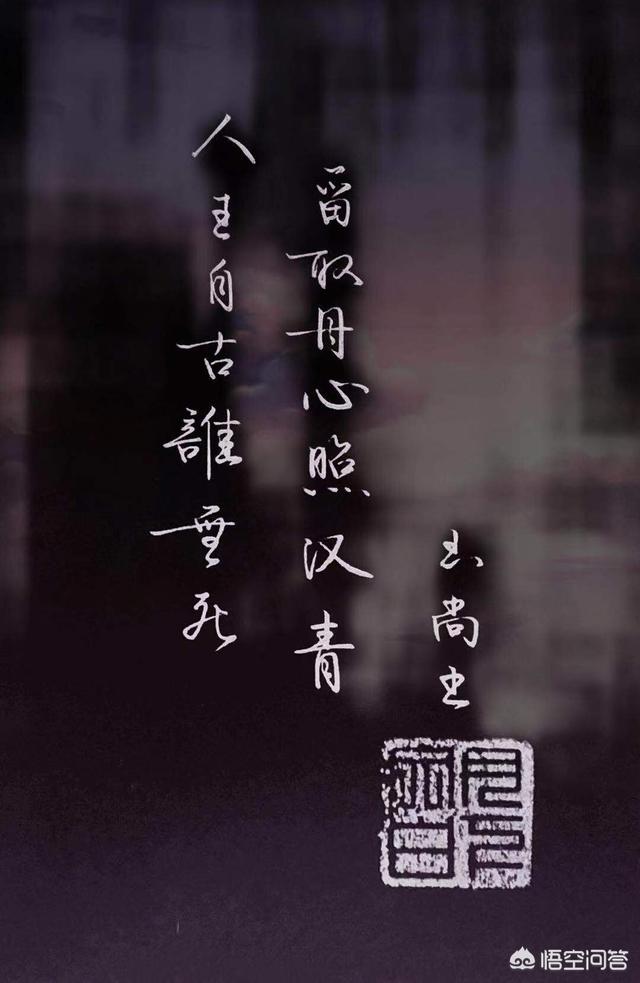 人生自古誰無死
留取丹心照汉青
尚
悟空问答